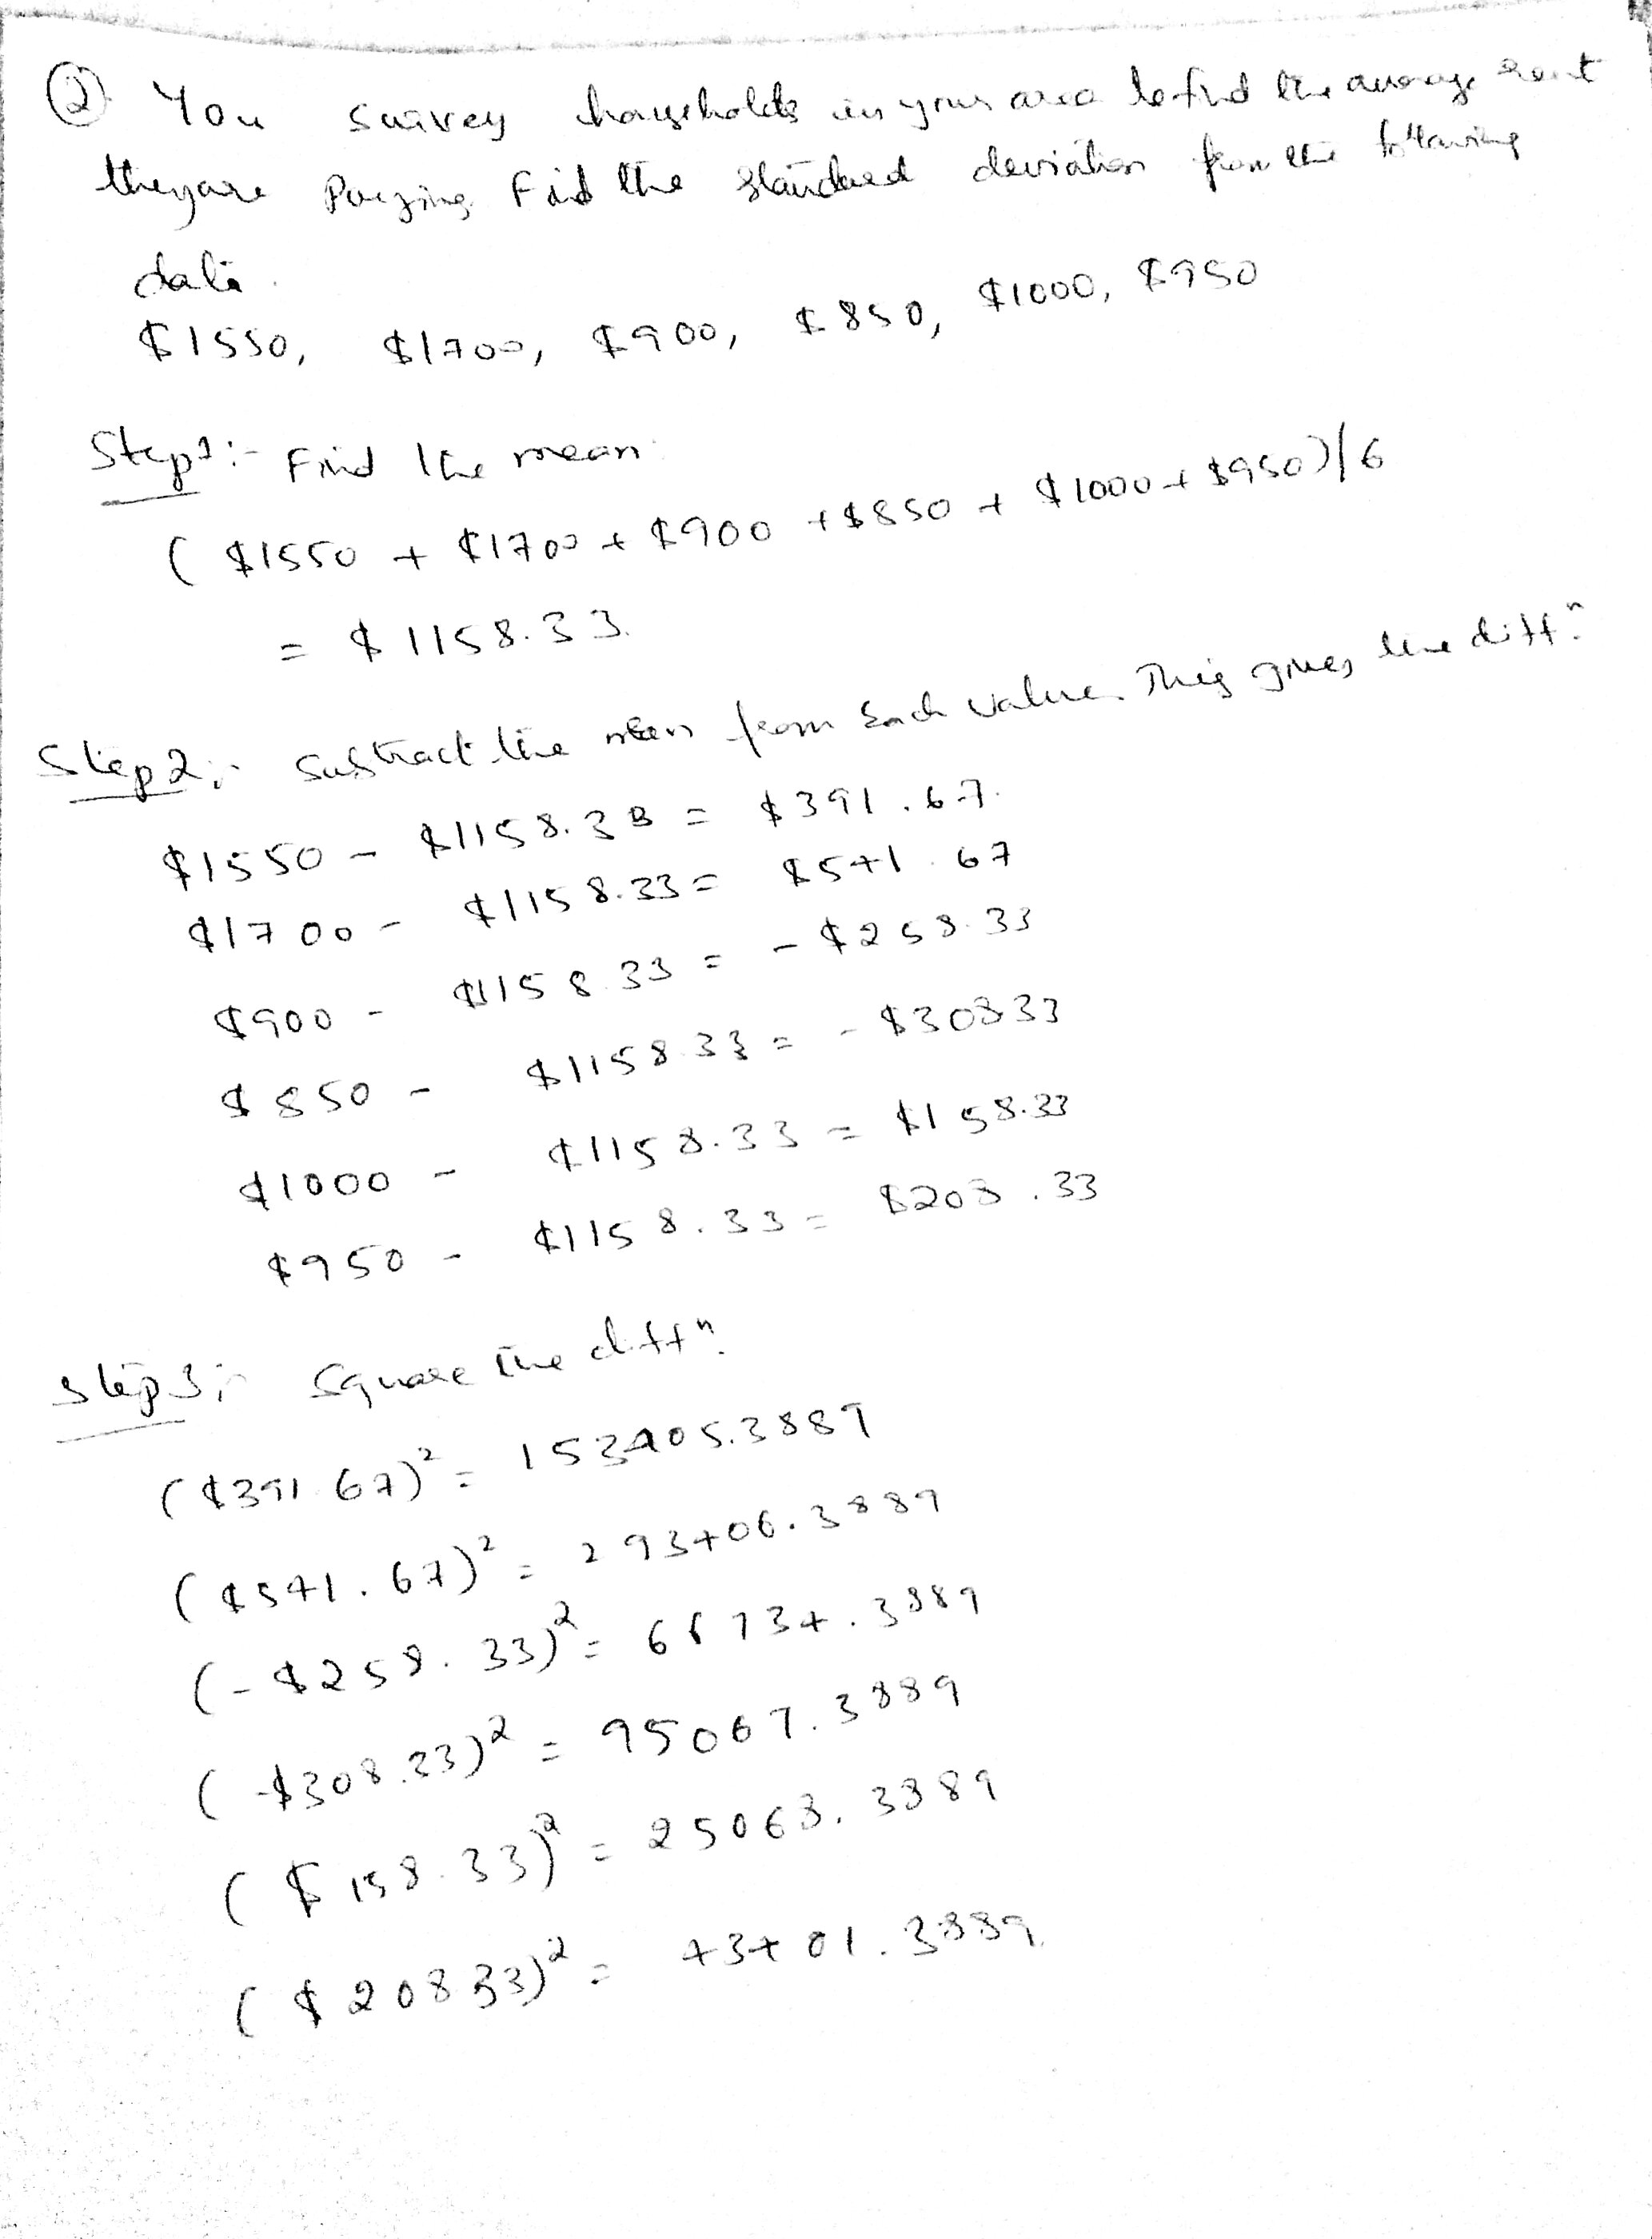 ② You survey households in your area to find the average rent
they are paying. Find the standard deviation from the following
data.
$1550, $1700, $900, $850, $1000, $950
Step1:- Find the mean
( $1550 + $1700 + $900 + $850 + $1000 + $950)/6
= $1158.33.
Step2:- Substract the mean from each value. This gives the diffn.
$1550 - $1158.33 = $391.67.
$1700 - $1158.33 = $541.67
$900 - $1158.33 = -$258.33
$850 - $1158.33 = -$308.33
$1000 - $1158.33 = $158.33
$950 - $1158.33 = $208.33
Step3:- Square the diffn.
($391.67)² = 153405.3889
($541.67)² = 293406.3889
(-$258.33)² = 66734.3889
(-$308.33)² = 95067.3889
($158.33)² = 25068.3389
($208.33)² = 43401.3889.